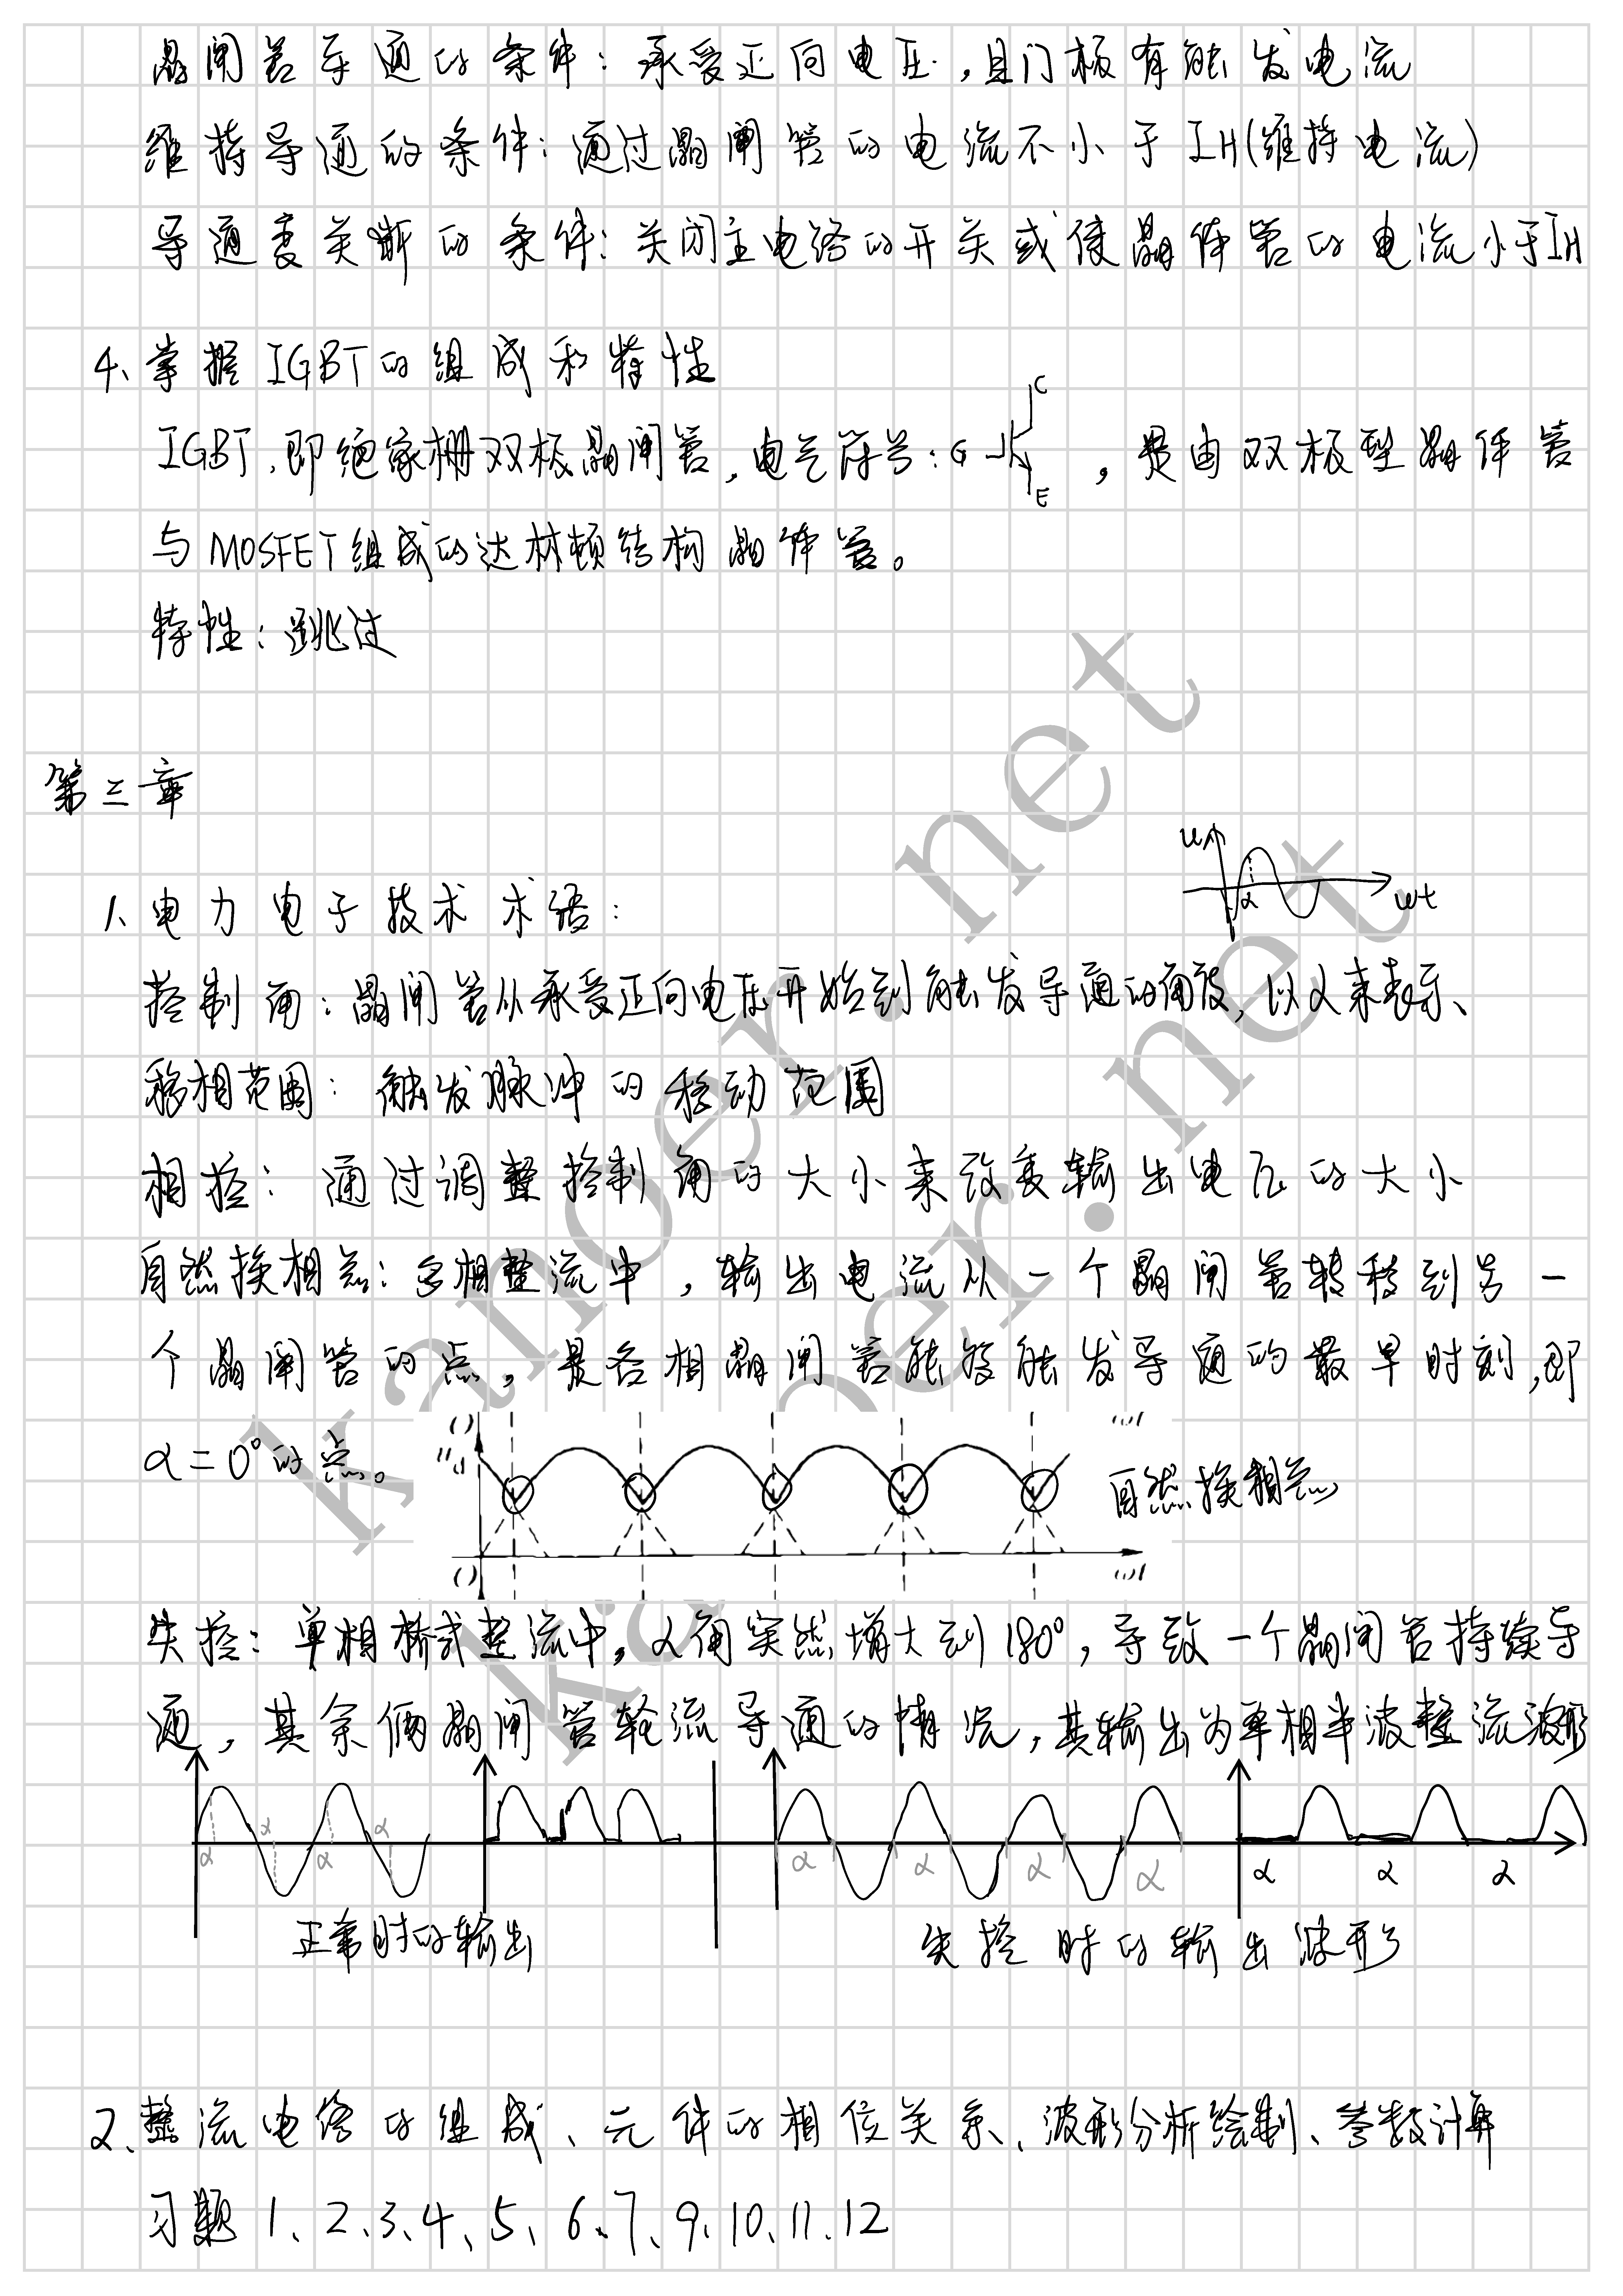 晶闸管导通的条件：承受正向电压，且门极有触发电流
维持导通的条件：通过晶闸管的电流不小于IH(维持电流)
导通变关断的条件：关闭主电路的开关或使晶体管的电流小于IH
4、掌握IGBT的组成和特性
IGBT，即绝缘栅双极晶闸管，电气符号：G C E，是由双极型晶体管
与MOSFET组成的达林顿结构晶体管。
特性：跳过
第三章
u α ωt
1、电力电子技术术语：
控制角：晶闸管从承受正向电压开始到触发导通的角度，以α来表示、
移相范围：触发脉冲的移动范围
相控：通过调整控制角的大小来改变输出电压的大小
自然换相点：多相整流中，输出电流从一个晶闸管转移到另一
个晶闸管的点，是各相晶闸管能够触发导通的最早时刻，即
α=0°的点。
自然换相点
失控：单相桥式整流中，α角突然增大到180°，导致一个晶闸管持续导
通，其余俩晶闸管轮流导通的情况，其输出为单相半波整流波形
α α α α α α α α α α α
正常时的输出 失控时的输出波形
2、整流电路的组成、元件的相位关系、波形分析绘制、参数计算
习题1、2、3、4、5、6、7、9、10、11、12
kanoer.net
kanoer.net